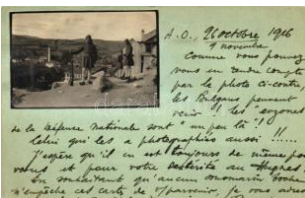 A.O., 26 octobre 1916
1 novembre
Comme vous pouvez
vous en rendre compte
par le photo ci-contre,
les Bulgares peuvent
venir !! les
de la Défense Nationale sont un peu là !!
Celui qui les a photographiés aussi !.....
J'espère qu'il en est toujours de même pour
vous et pour votre
En souhaitant qu'aucun
n'empêche cet carte de parvenir, je vous